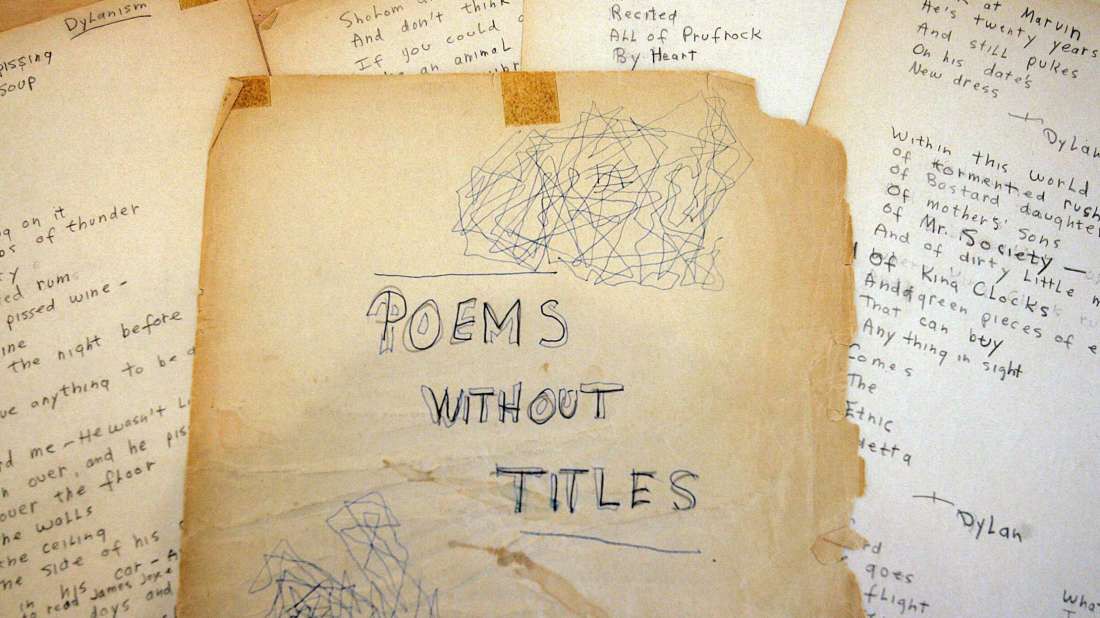 Dylanism
pissing
soup
g on it
os of thunder
ed rum
pissed wine -
ine
the night before
ve anything to be d
rd me - He wasn't Li
n over, and he pis
over the floor
he walls
the ceiling
he side of his
in his car - A
to read James Joyce
days and
Shohom
And don't think
If you could
an animal
Recited
All of Prufrock
By Heart
POEMS
WITHOUT
TITLES
at Marvin
He's twenty years
And still pukes
On his date's
New dress
Dylan
Within this world
of tormented rush
of Bastard daughter
Of mothers' sons
of Mr. Society -
And of dirty Little m
Of King Clocks
And green pieces of e
That can buy
Any thing in sight
Comes
The
Ethic
detta
Dylan
rd
goes
flight
What